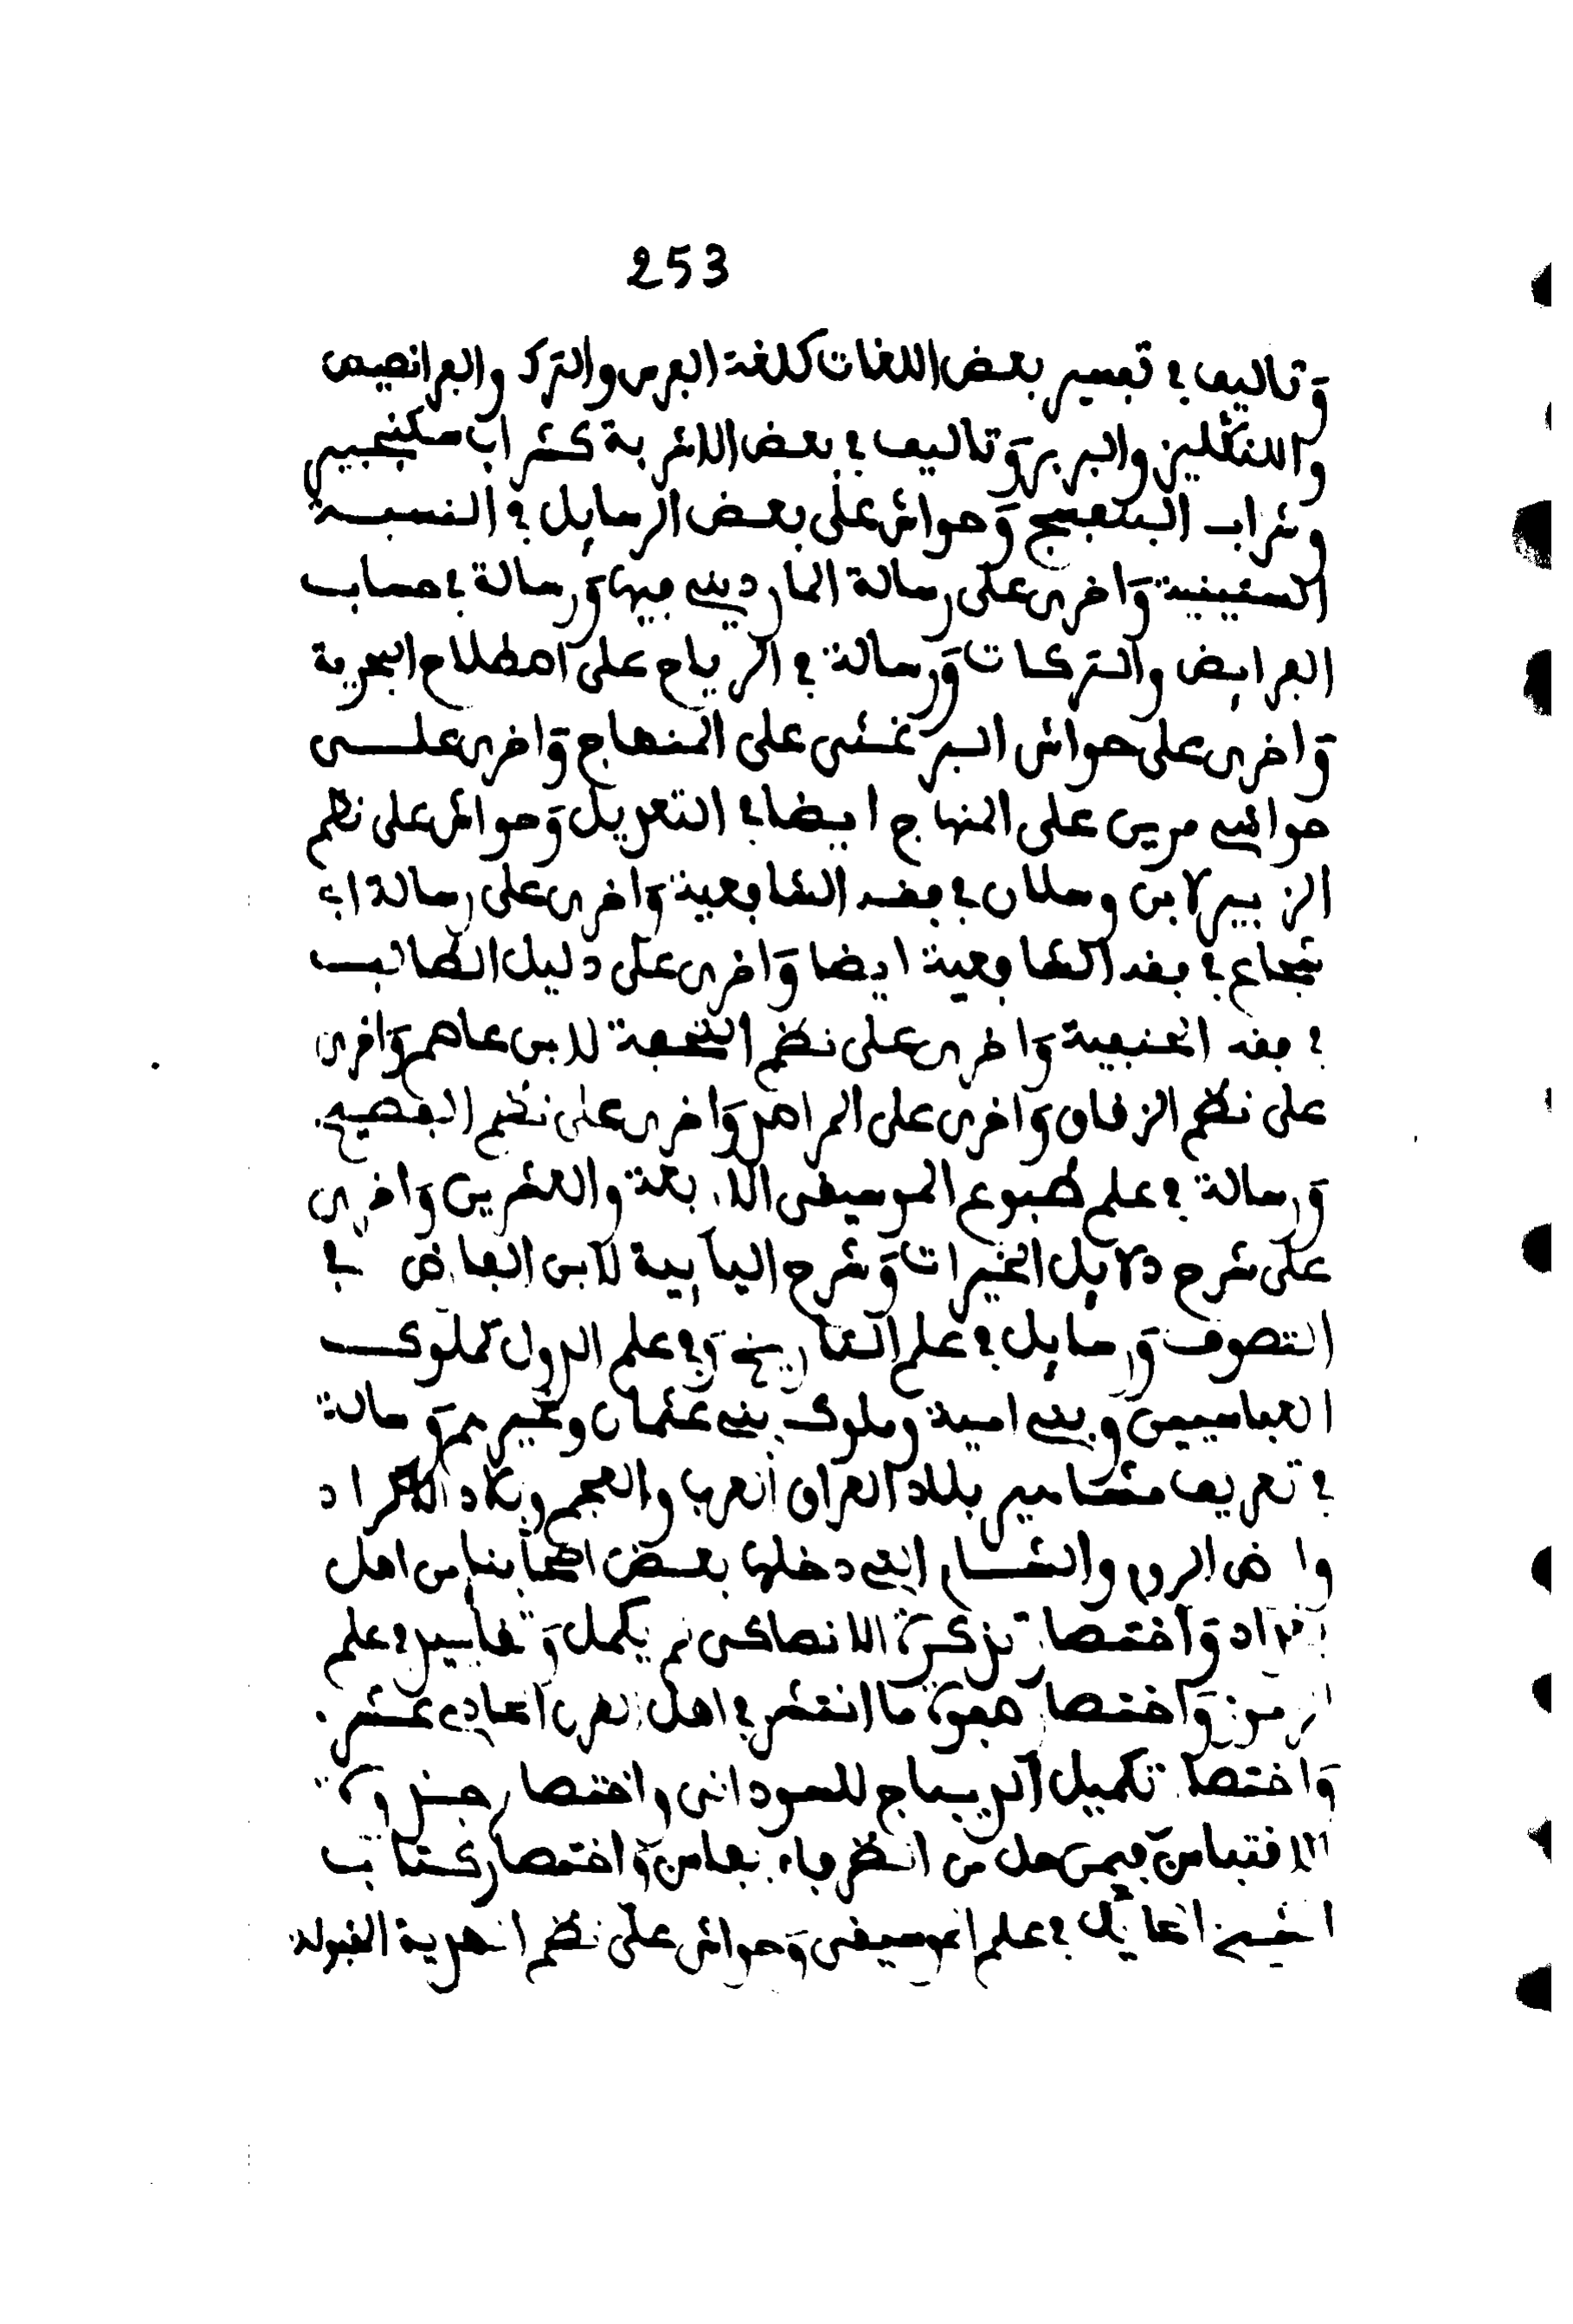 253
وتاليف في تفسير بعض اللغات كلغة الفرس والترك والفرانصيص
والانكليز والبربر وتاليف في بعض الاشربة كشراب سكنجبير
وشراب البنفسج وحواش على بعض الرسايل في النسبة
الستينية واخرى على رسالة المارديني فيها ورسالة في حساب
الفرايض والتركات ورسالة في الرياح على اصطلاح البحرية
واخرى على حواش البرغثى على المنهاج واخرى علــى
حواشي مريي على المنهاج ايضا في التعريل وحواش على نظم
الزبير لابن رسلان في فقه الشافعية واخرى على رسالة ابي
شجاع في فقه الشافعية ايضا واخرى على دليل الطالب
في فقه الحنفية واخرى على نظم التحفة لابن عاصم واخرى
على نظم الزقاق واخرى على المراصد واخرى على نظم الفصيح
ورسالة في علم طبوع الموسيقى الاربعة والعشرين واخرى
على شرح دلايل الخيرات وشرح اليايية لابن الفارض في
التصوف ورسايل في علم التاريخ وفي علم الدول كملوك
العباسيين وبني امية وملوك بني عثمان وغيرهم ورسالة
في تعريف مشاهير بلاد العراق العرب والعجم وبلاد الاكراد
وارض الروم والشام التي دخلها بعض اصحابنا من اهل
بغداد واختصار تذكرة الانصاكى لم يكمل وتفاسير في علم
الرمز واختصار صفوة ما انتشر في اهل القرن الحادي عشر
واختصار تكميل الديباج للسودانى واختصار جذوة
الاقتباس فيمن حل من انظرفاء بفاس واختصار كتاب
الشيخ الحايك في علم الموسيقى وحواش على نظم الهدية المقبولة